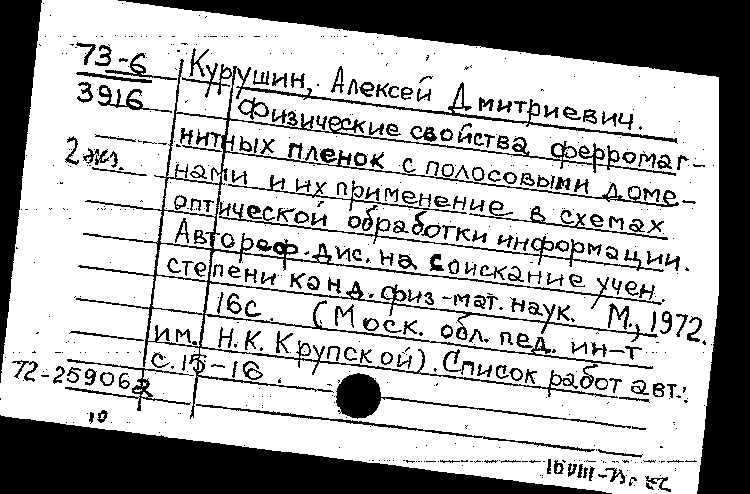 73-6
3916
2 экз.
Курушин, Алексей Дмитриевич.
Физические свойства ферромаг-
нитных пленок с полосовыми доме-
нами и их применение в схемах
оптической обработки информации.
Автореф. дис. на соискание учен.
степени канд. физ-мат. наук. М., 1972.
16с. (Моск. обл. пед. ин-т
им. Н.К. Крупской). Список работ авт.:
с.15-16.
72-25906
10